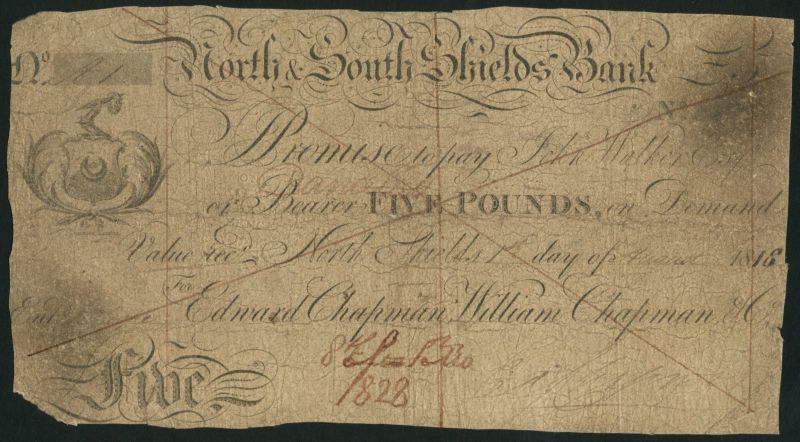 No. 41
North & South Shields Bank
No
Promise to pay John Walker Esqr
or Bearer FIVE POUNDS, on Demand
Value recd North Shields 1st day of 1815
For Edward Chapman, William Chapman & Co.
Entd
Five
1828